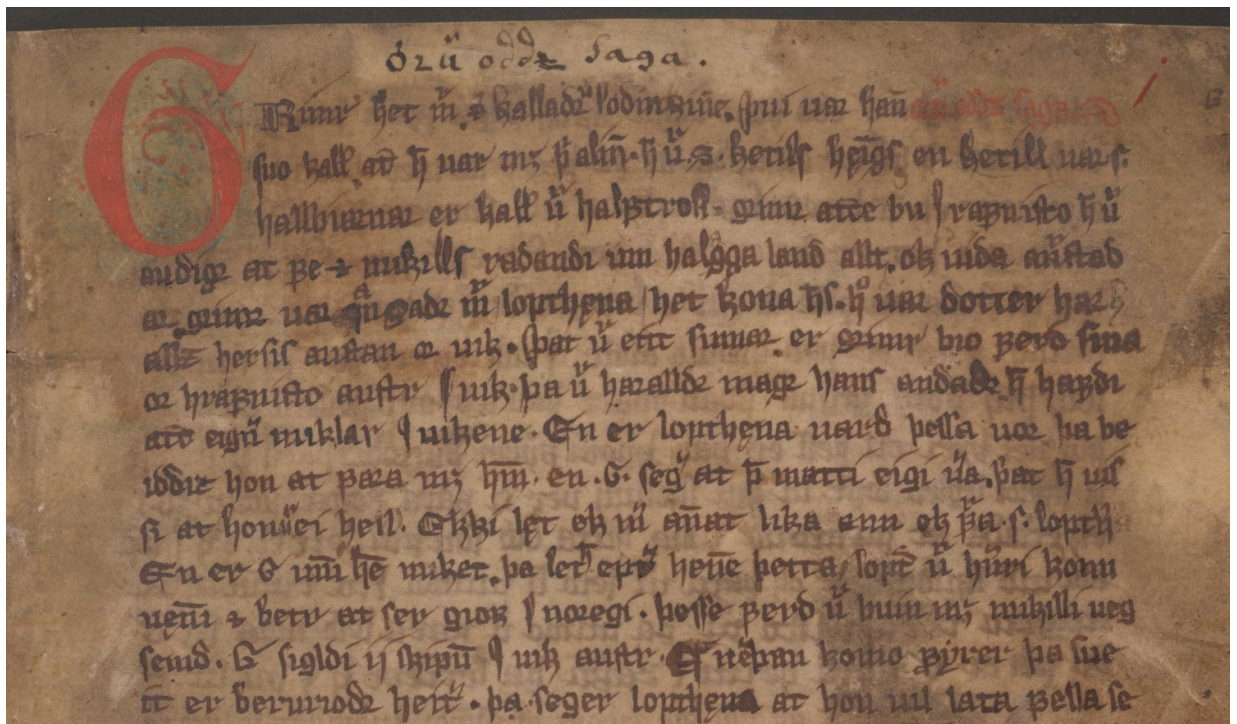 ỏruͣ oddz saga.
GRimr het mͬ ⁊ kalladr lodinkīne. þui uar han̄
suo kall at h̄ uar mz þ̄ alin̄. h̄ ũ .s. ketils hęīgs en ketill uar .s.
hallbiarnar er kall ũ halftroll. grimr atte bu j rafnisto h̄ ũ
audigr at fe ⁊ mikills radandi um halogaland allt. ok uida an̄stad
ar. grimr uar kuangadr mͬ lopthęna het kona hs. h̄ uar dotter har
allz hersis austan or uik. þat ũ eitt sumar er grimr bio ferd sina
or hrafnisto austr j uik. þa ũ haralldr magr hans andadr h̄ hafdi
att eignͬ miklar j uikene. En er lopthęna uard þessa uor þa be
iddizt hon at fara mz hm̄. en .G. segͬ at þ̄ matti eigi ũa. þat h̄ uis
si at hon ũ ei heil. Ekki lęt ek mͬ an̄at lika ann ek fa .s. lopth
En er G un̄i hēe miket. þa let h̄ eptͬ hen̄e þetta. lopt ũ hũri konu
uęn̄i ⁊ betr at ser gior j noregi. þesse ferd ũ buin mz mikilli ueg
semd. G sigldi ij skipū j uik austr. Ef nēpan komo fyrer þa sue
it er beruriodr heitͬ. þa seger lopthena at hon uil lata fella se